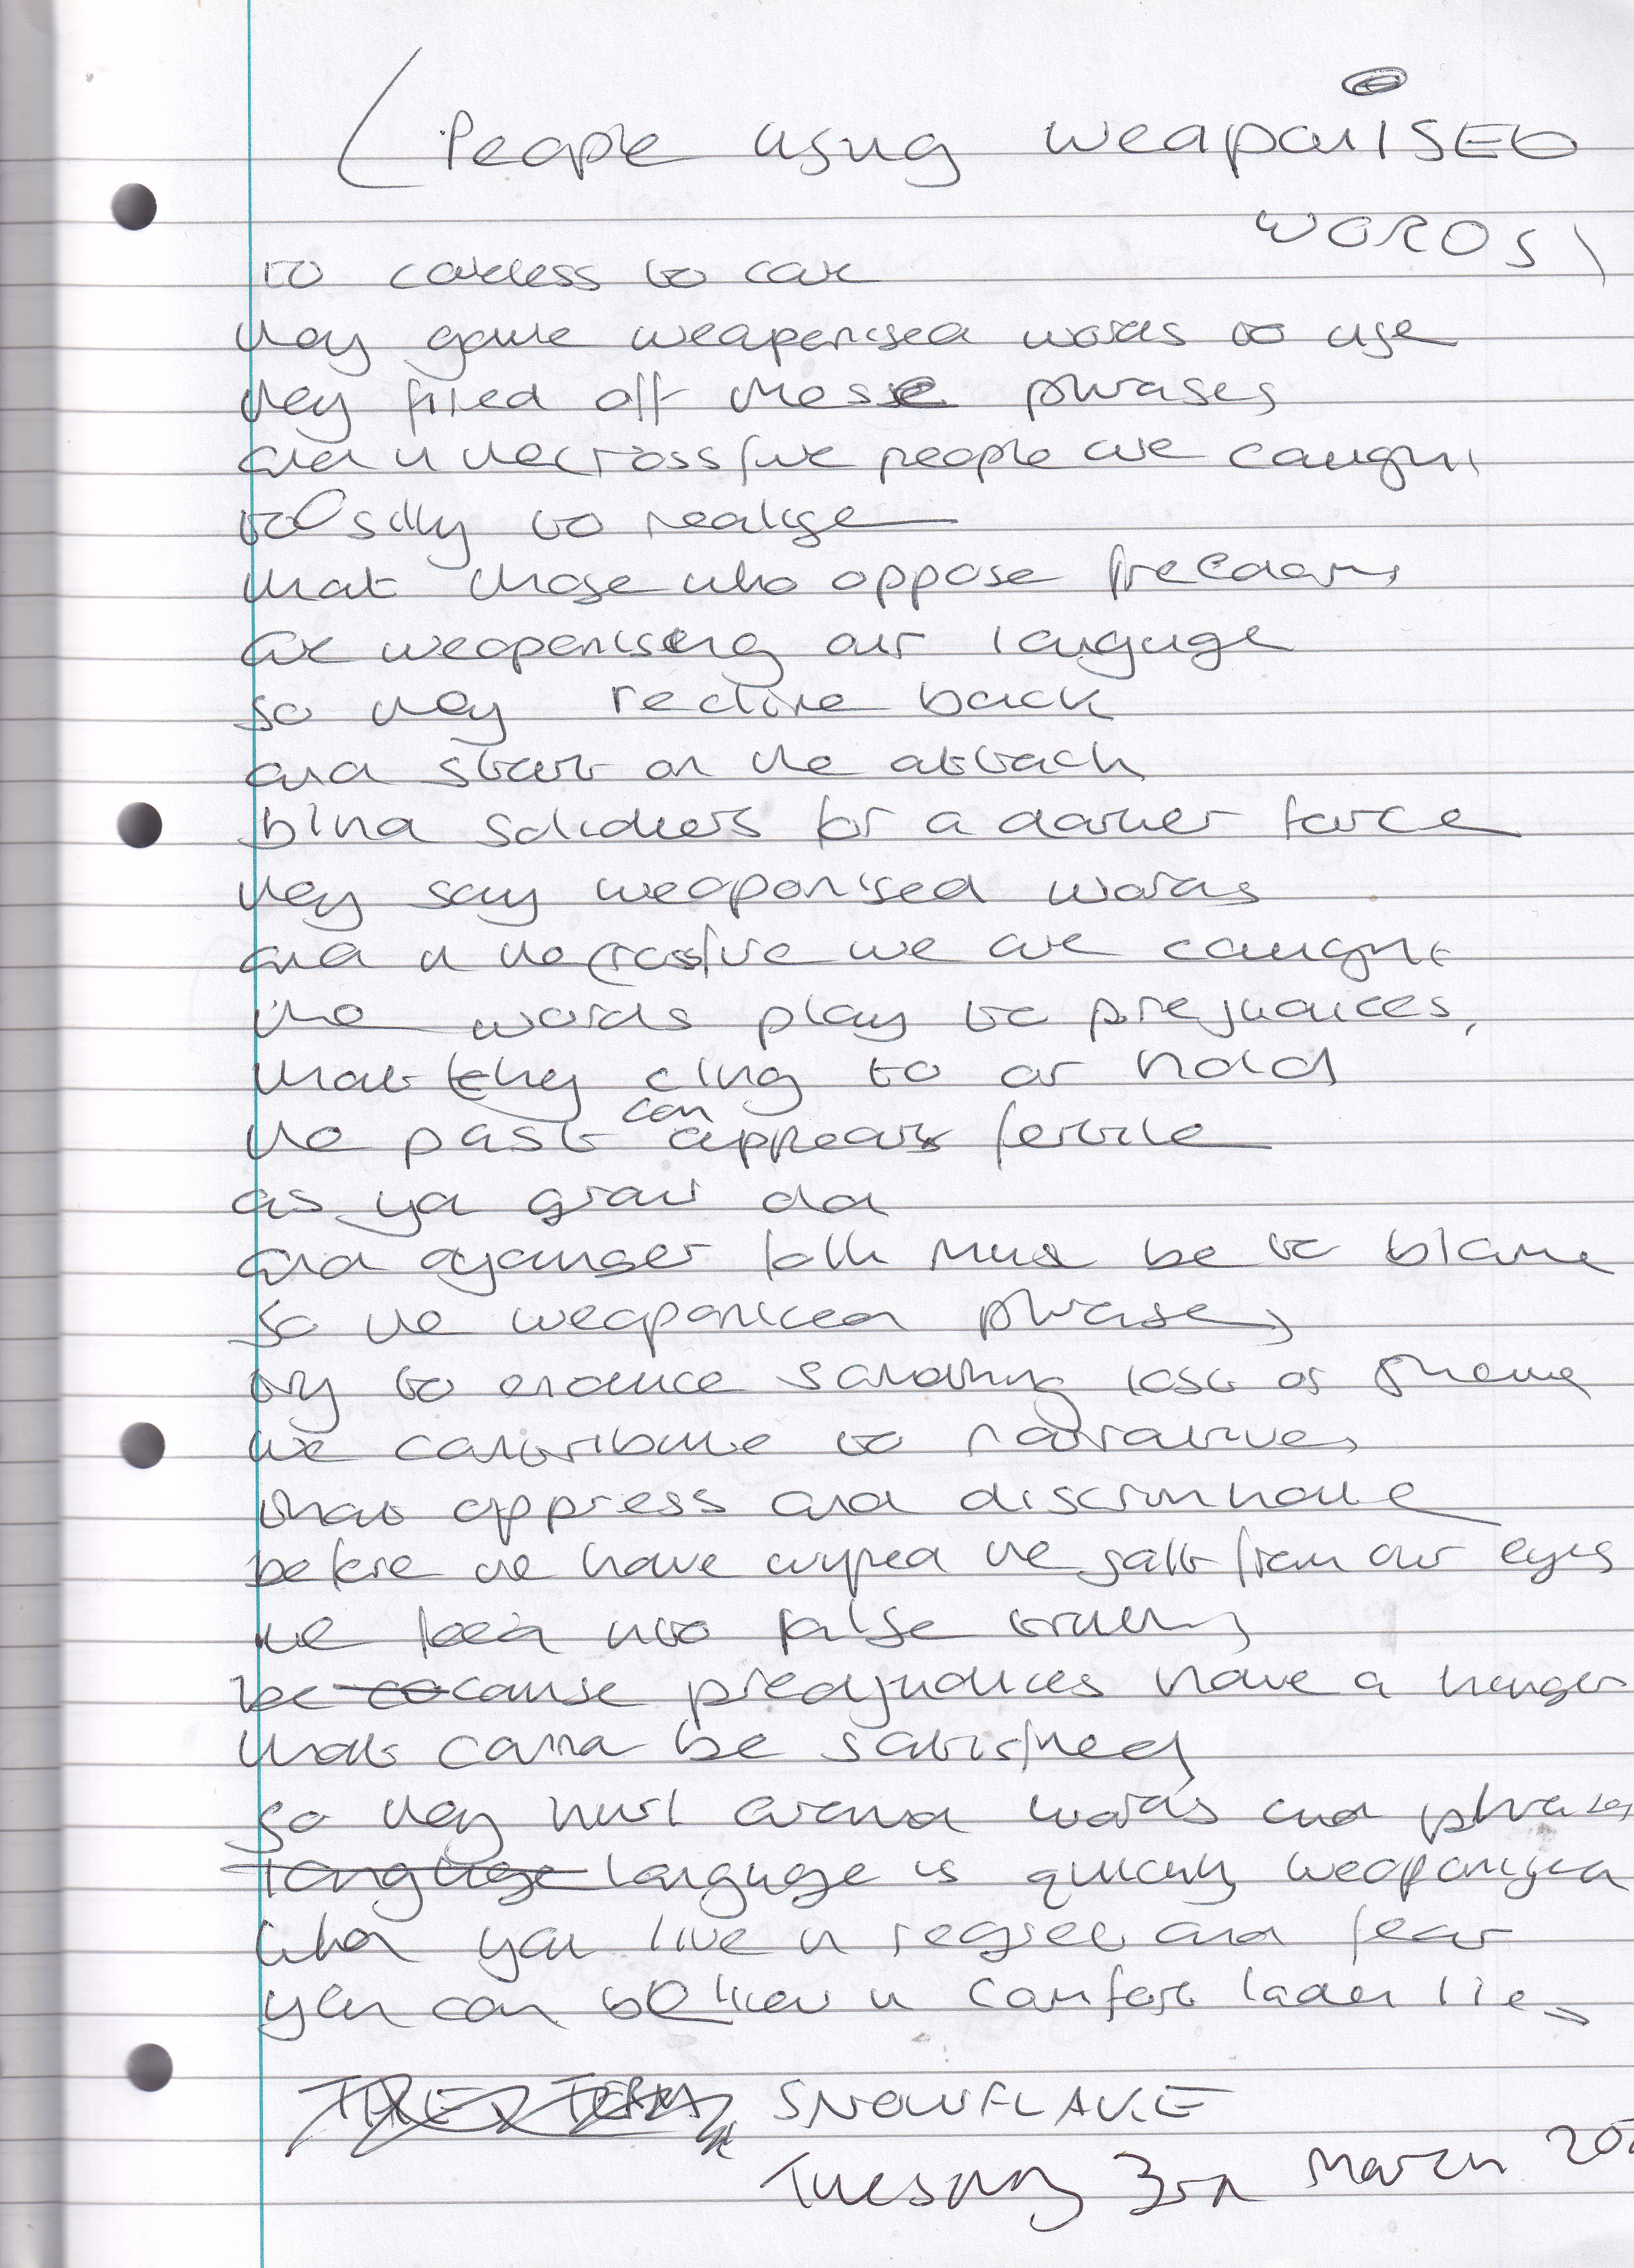 (People using weaponISED
WORDS)
to careless to care
they gave weaponised words to use
they fired off these phrases
and in the crossfire people are caught
too silly to realise
that those who oppose freedoms
are weaponising our languge
so they recline back
and start on the attack
blind solidiers for a darker force
they say weaponised words
and in the crossfire we are caught
the words play to prejudices,
that they cling to or hold
the past can appear fertile
as ya grow old
and ayounger folk must be to blame
so the weaponised phrases
try to enduce something lost or
we contribute to narratives
that oppress and discriminate
before we have wiped the salt from our eyes
we lock into false truths
because preadjudices have a hunger
that canna be satisfied
so they hurl around words and phrases
languge is quickly weaponised
when you live in regret and fear
you can believe in comfort laden lies
SNOWFLAKE
Tuesday 3rd March 20